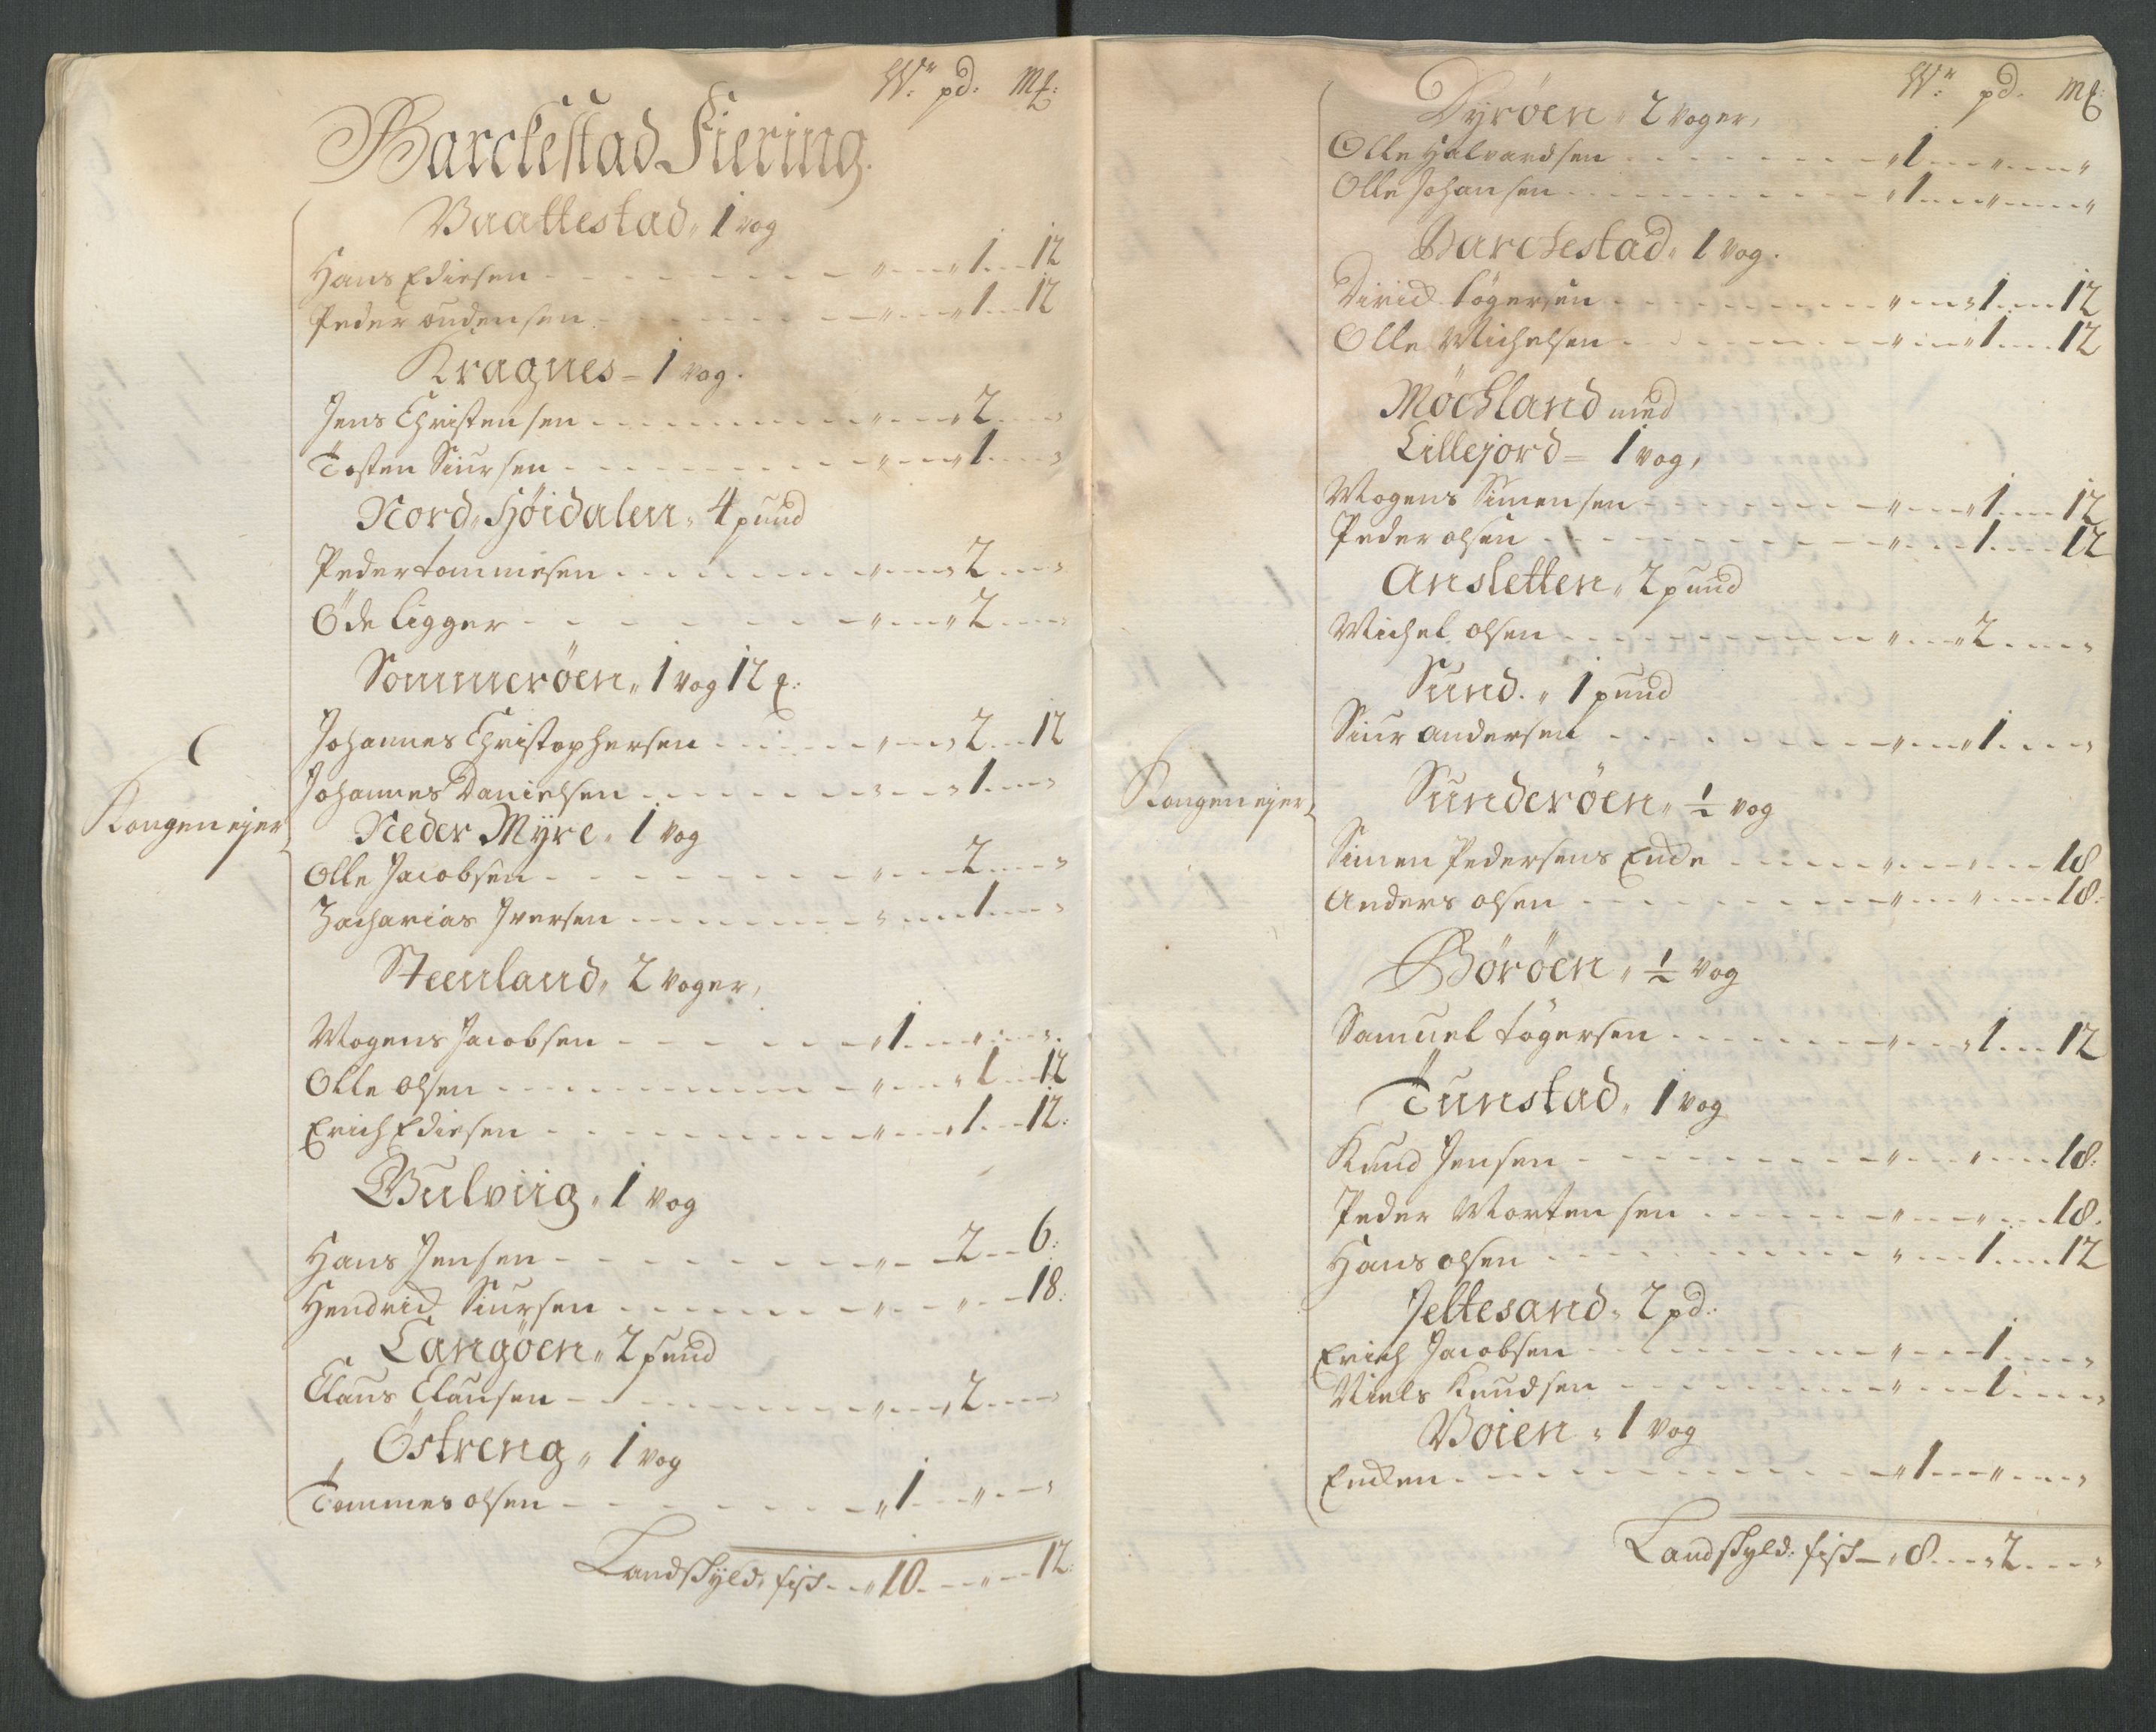 W: pd: M℔:
Barckestad Fiering.
Baattestad 〃 1 vog
Hans Ediesen - - - 〃 - - 1 - - 12
Peder audensen - - - 〃 - - 1 - - 12
Kragnes - 1 vog.
Jens Christensen - - - 〃 - - 2 - - 〃
Tosten Siursen - - - 〃 - - 1 - - 〃
Nord Höidalen 〃 4 pund
Peder tommesen - - - 〃 - - 2 - - 〃
Öde ligger - - - 〃 - - 2 - - 〃
Sommeröen 〃 1 vog 12 ℔:
Johannes Christophersen - - - 〃 - - 2 - - 12
Johannes Danielsen - - - 〃 - - 1 - - 〃
Kongen ejer
Neder Myre 〃 1 vog
Olle Jacobsen - - - 〃 - - 2 - - 〃
Zacharias Iversen - - - 〃 - - 1 - - 〃
Steenland 〃 2 voger,
Mogens Jacobsen - - - 〃 1 - - 〃 - - 〃
Olle olsen - - - 〃 - - 1 - - 12
Erich Ediesen - - - 〃 - - 1 - - 12:
Gulviig 〃 1 vog
Hans Jensen - - - 〃 - - 2 - - 6:
Hendrick Siursen - - - 〃 - - 〃 - - 18:
Langöen 〃 2 pund
Claus Clausen - - - 〃 - - 2 - - 〃
Östreng 〃 1 vog
Tommes olsen - - - 〃 1 - - 〃 - - 〃
Landskyld, fisk - - 〃 10 - - 〃 - - 12:
W: pd. M℔:
Dyröen 〃 2 voger,
Olle Halvardsen - - - 〃 1 - - 〃 - - 〃
Olle Johansen - - - 〃 1 - - 〃 - - 〃
Barckestad 〃 1 vog.
Dirick tögersen - - - 〃 - - 1 - - 12
Olle Michelsen - - - 〃 - - 1 - - 12
Möckland med
Lillejord = 1 vog,
Mogens Simensen - - - 〃 - - 1 - - 12
Peder olsen - - - 〃 - - 1 - - 12
Ansletten 〃 2 pund
Michel olsen - - - 〃 - - 2 - - 〃
Sund. 〃 1 pund
Siur andersen - - - 〃 - - 1 - - 〃
Kongen ejer
Sunderöen 〃 1/2 vog
Simen Pedersens Encke - - - 〃 - - 〃 - - 18
Anders olsen - - - 〃 - - 〃 - - 18:
Böröen 〃 1/2 vog
Samuel tögersen - - - 〃 - - 1 - - 12
Tunstad 〃 1 vog
Knud Jensen - - - 〃 - - 〃 - - 18:
Peder Mortensen - - - 〃 - - 〃 - - 18.
Hans olsen - - - 〃 - - 1 - - 12
Jeltesand 〃 2 pd:
Erich Jacobsen - - - 〃 - - 1 - - 〃
Niels Knudsen - - - 〃 - - 1 - - 〃
Boien 〃 1 vog
Encken - - - 〃 1 - - 〃 - - 〃
Landskyld: fisk - 〃 8 - - 〃 2 - - 〃